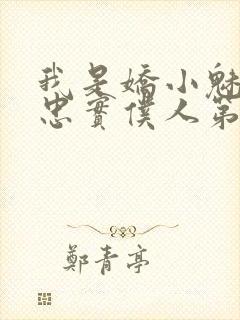 我是嬌小魅
忠實僕人第
鄭青亭